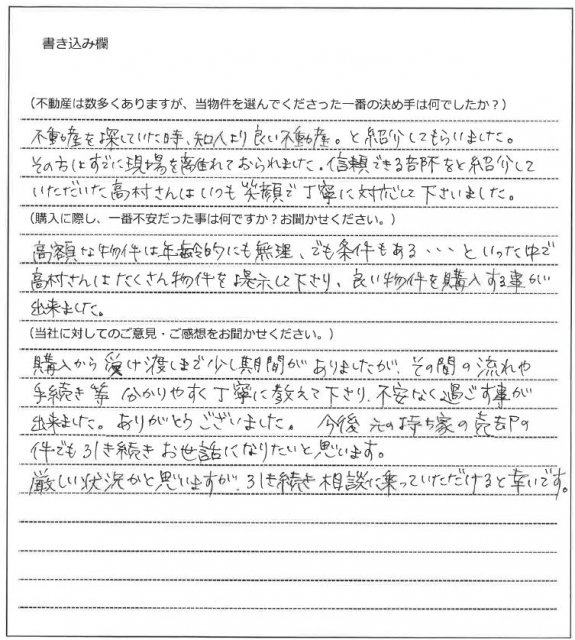 書き込み欄
(不動産は数多くありますが、当物件を選んでくださった一番の決め手は何でしたか?)
不動産を探していた時、知人より良い不動産。と紹介してもらいました。
その方はすでに現場を離れておられました。信頼できる部師をと紹介して
いただいた高村さんはいつも笑顔で丁寧に対応して下さいました。
(購入に際し、一番不安だった事は何ですか?お聞かせください。)
高額な物件は年齢的にも無理、でも条件もある・・・といった中で
高村さんはたくさん物件を提示して下さり、良い物件を購入する事が
出来ました。
(当社に対してのご意見・ご感想をお聞かせください。)
購入から受け渡しまで少し期間がありましたが、その間の流れや
手続き等 分かりやすく丁寧に教えて下さり、不安なく過ごす事が
出来ました。ありがとうございました。 今後 元の持ち家の売却の
件でも引き続きお世話になりたいと思います。
厳しい状況かと思いますが、引き続き相談に乗っていただけると幸いです。